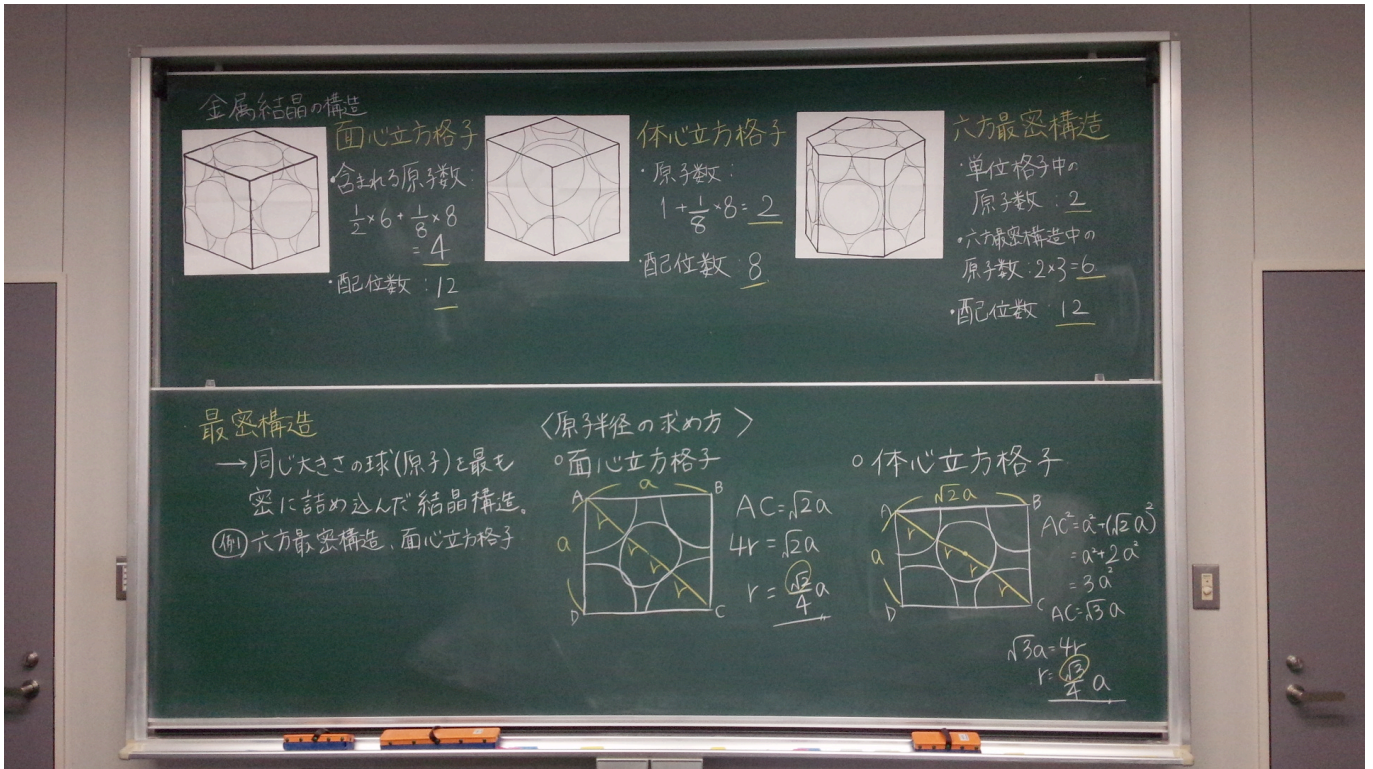 金属結晶の構造
面心立方格子
・含まれる原子数:
1/2×6+1/8×8
=4
・配位数:12
体心立方格子
・原子数:
1+1/8×8=2
・配位数:8
六方最密構造
・単位格子中の
原子数:2
・六方最密構造中の
原子数:2×3=6
・配位数:12
最密構造
→同じ大きさの球(原子)を最も
密に詰め込んだ結晶構造。
例 六方最密構造、面心立方格子
〈原子半径の求め方〉
○面心立方格子
a
A
B
a
r
r
r
r
D
C
AC=√2a
4r=√2a
r=√2/4a
○体心立方格子
√2a
A
B
a
r
r
r
r
D
C
AC²=a²+(√2a)²
=a²+2a²
=3a²
AC=√3a
√3a=4r
r=√3/4a